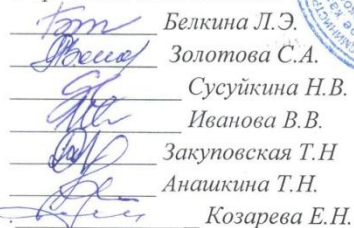 Белкина Л.Э.
Золотова С.А.
Сусуйкина Н.В.
Иванова В.В.
Закуповская Т.Н
Анашкина Т.Н.
Козарева Е.Н.